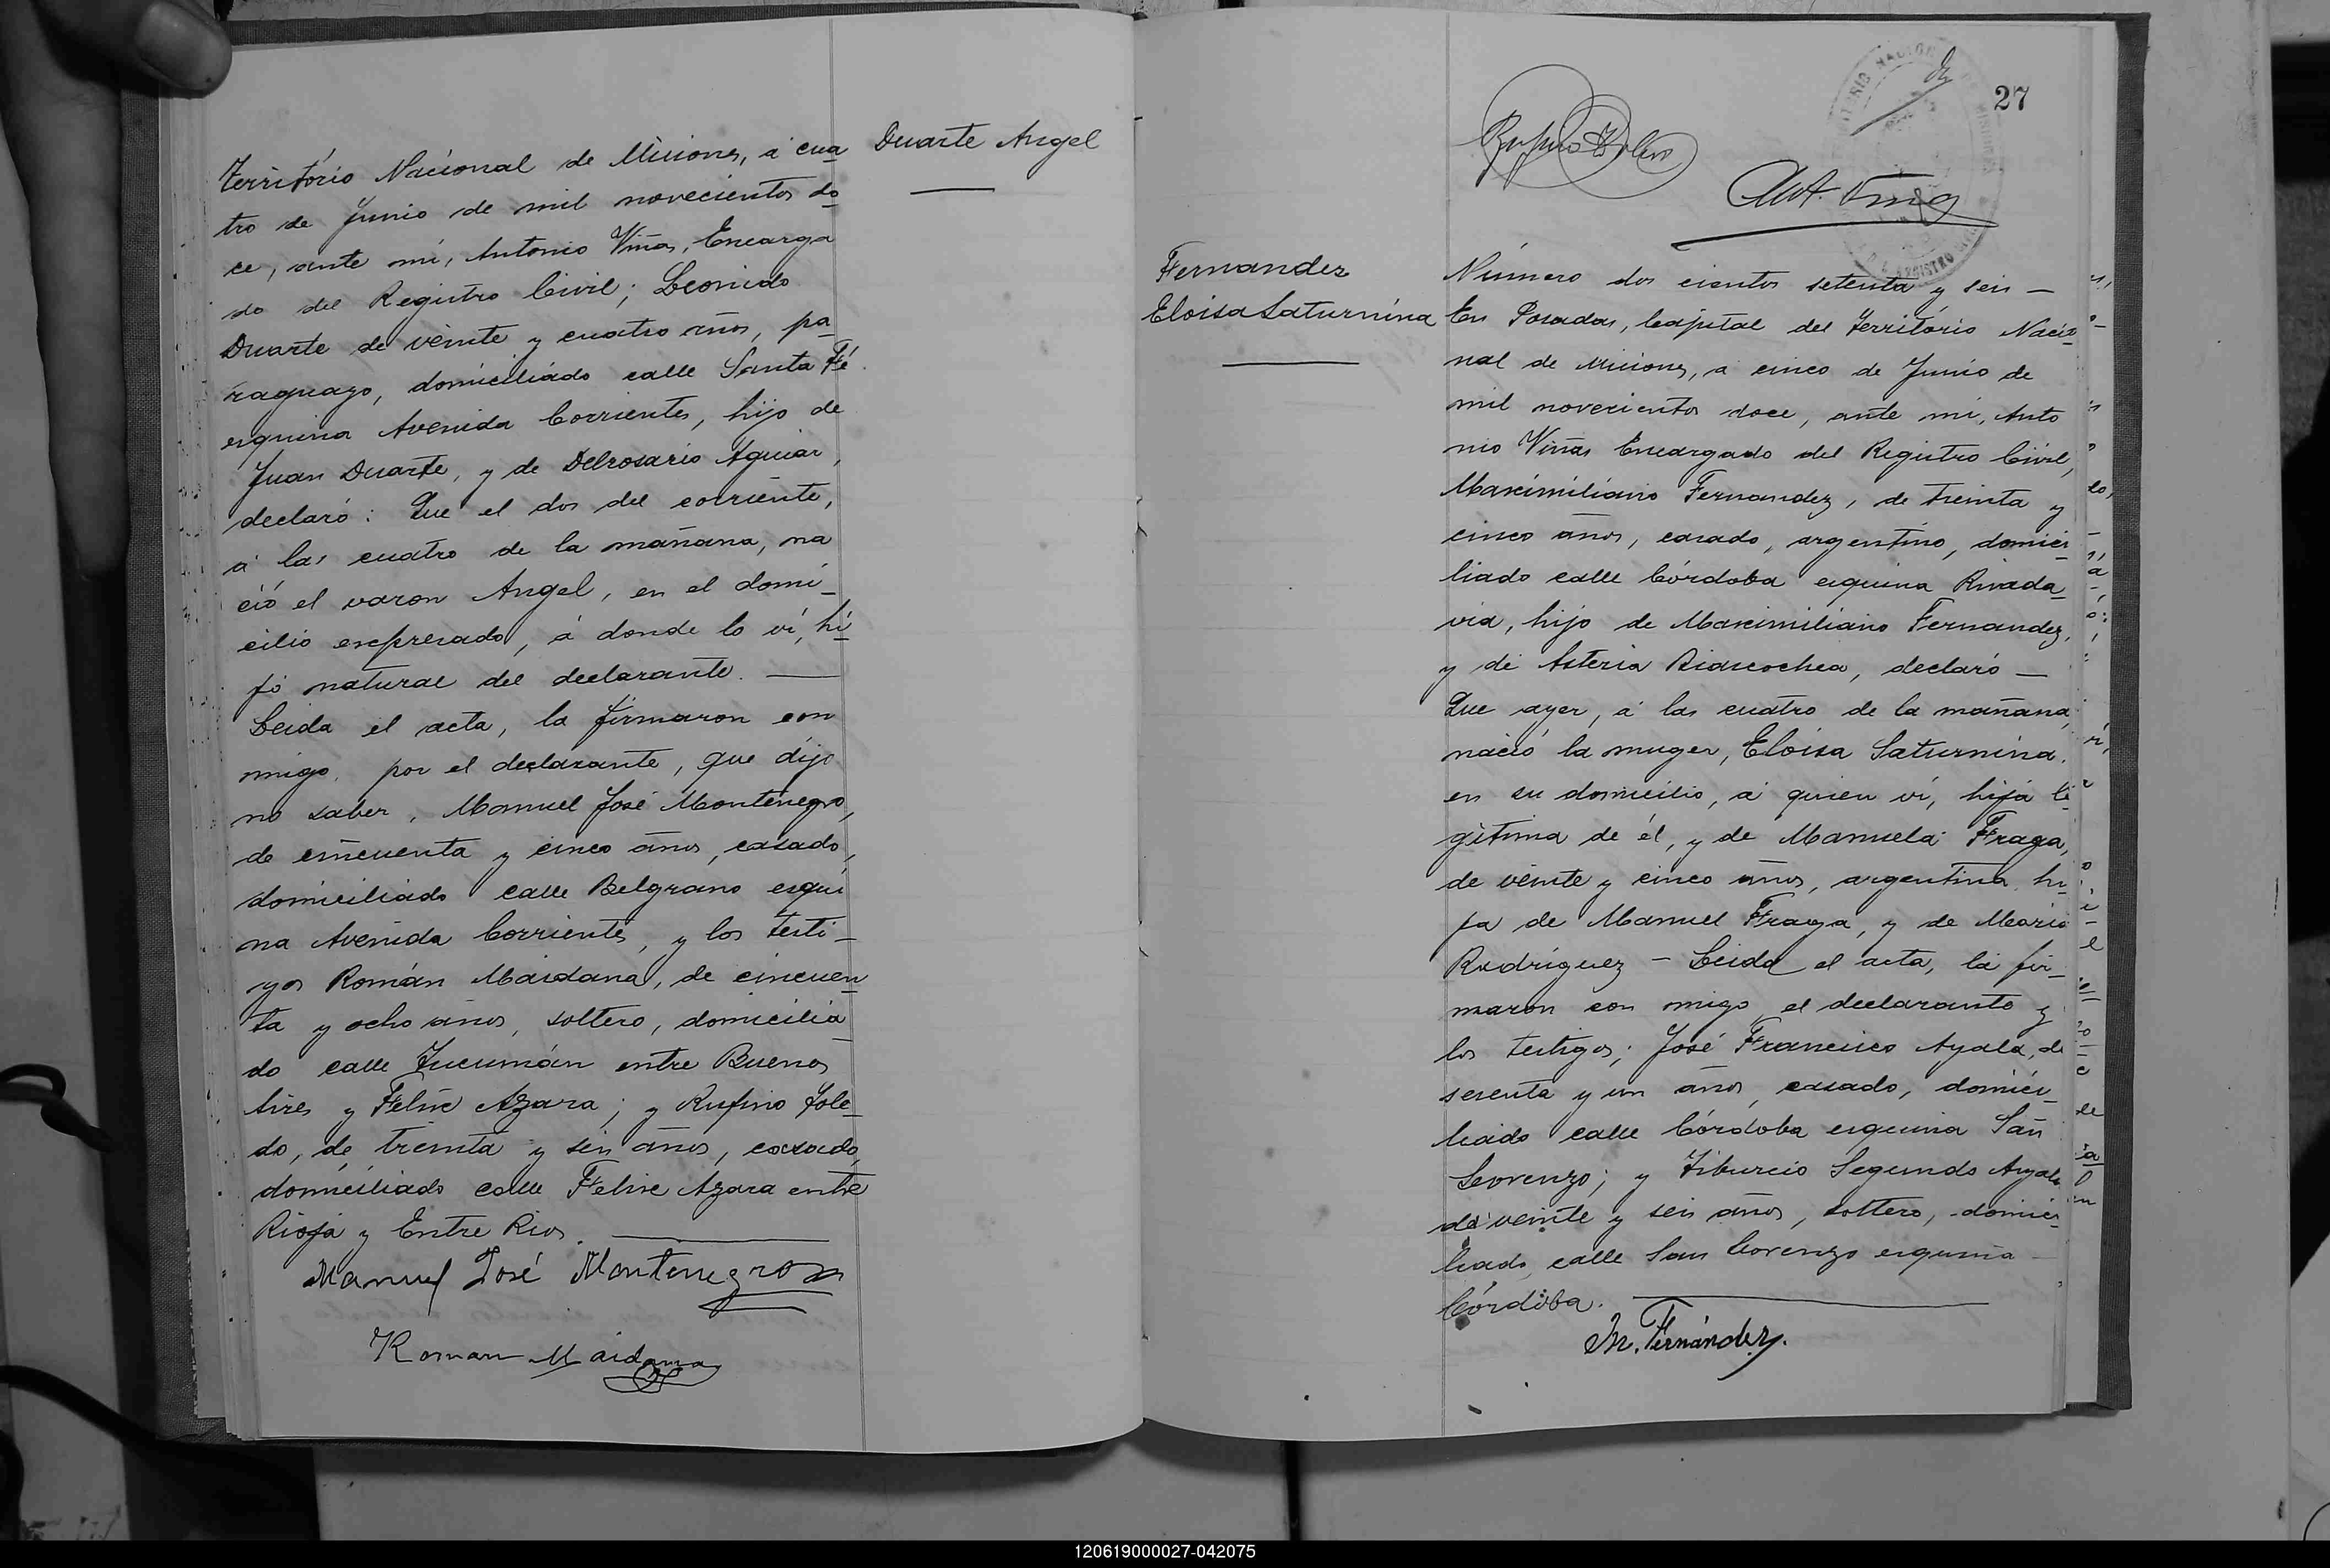 Territorio Nacional de Misiones, á cua
tro de Junio de mil novecientos do
ce, ante mí, Antonio Viñas, Encarga
do del Registro Civil; Leonido
Duarte de veinte y cuatro años, pa
raguayo, domiciliado calle Santa Fé
esquina Avenida Corrientes, hijo de
Juan Duarte, y de Delrosario Aguiar,
declaró: Que el dos del corriente,
á las cuatro de la mañana, na
ció el varon Angel, en el domi-
cilio expresado, á donde lo ví, hi
jo natural del declarante.
Leida el acta, la firmaron con
migo, por el declarante, que dijo
no saber, Manuel José Montenegro,
de cincuenta y cinco años, casado,
domiciliado calle Belgrano esqui
na Avenida Corrientes, y los testi-
gos Román Maidana, de cincuen
ta y ocho años, soltero, domicilia
do calle Tucumán entre Buenos
Aires y Felix Azara; y Rufino Tole
do, de treinta y seis años, casado,
domiciliado calle Felix Azara entre
Rioja y Entre Rios.
Manuel José Montenegro
Roman Maidana
Duarte Angel
27
Fernandez
Eloisa Saturnina
Número dos cientos setenta y seis —
En Posadas, Capital del Territorio Nacio
nal de Misiones, a cinco de Junio de
mil novecientos doce, ante mí, Anto
nio Viñas Encargado del Registro Civil,
Maximiliano Fernandez, de treinta y
cinco años, casado, argentino, domici
liado calle Córdoba esquina Rivada
via, hijo de Maximiliano Fernandez,
y de Asteria declaró —
Que ayer, á las cuatro de la mañana,
nació la muger, Eloisa Saturnina,
en su domicilio, á quien ví, hija lé
gitima de él, y de Manuela Fraga,
de veinte y cinco años, argentina, hi
ja de Manuel Fraga, y de Maria
Rodriguez — Leida el acta, la fir
maron con migo, el declarante y
los testigos; José Francisco Ayala, de
sesenta y un años, casado, domici
liado calle Córdoba esquina San
Lorenzo; y Tiburcio Segundo Ayala
de veinte y seis años, soltero, domici
liado, calle San Lorenzo esquina
Córdoba.
M. Fernández.
120619000027-042075